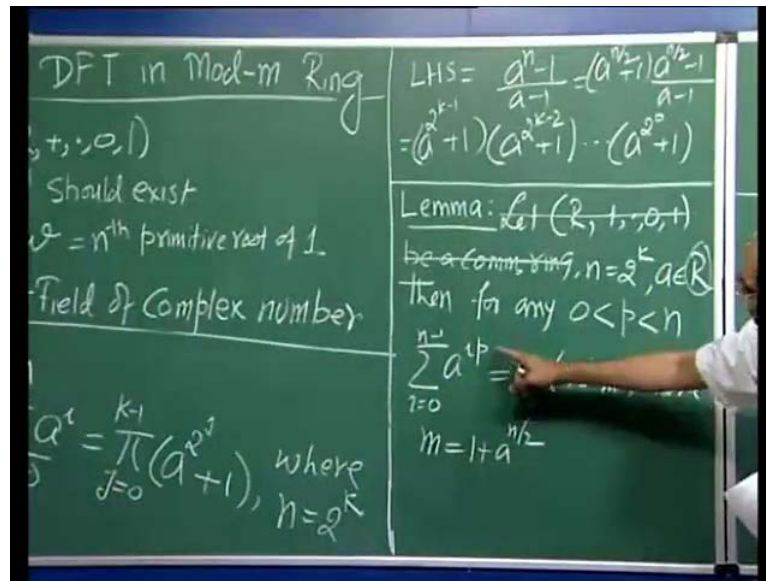 DFT in Mod-m Ring
, +, ·, 0, 1)
Should exist
= n-th primitive root of 1
Field of Complex number
a^i = π_{j=0}^{k-1} (a^{2^j} + 1), where
n = 2^k
LHS = \frac{a^n - 1}{a - 1} = (a^{n/2} + 1) \frac{a^{n/2} - 1}{a - 1}
= (a^{2^{k-1}} + 1)(a^{2^{k-2}} + 1) ·· (a^{2^0} + 1)
Lemma: Let (R, +, ·, 0, 1)
be a comm ring, n = 2^k, a ∈ R
then for any 0 < p < n
\sum_{i=0}^{n-1} a^{ip} =
m = 1 + a^{n/2}